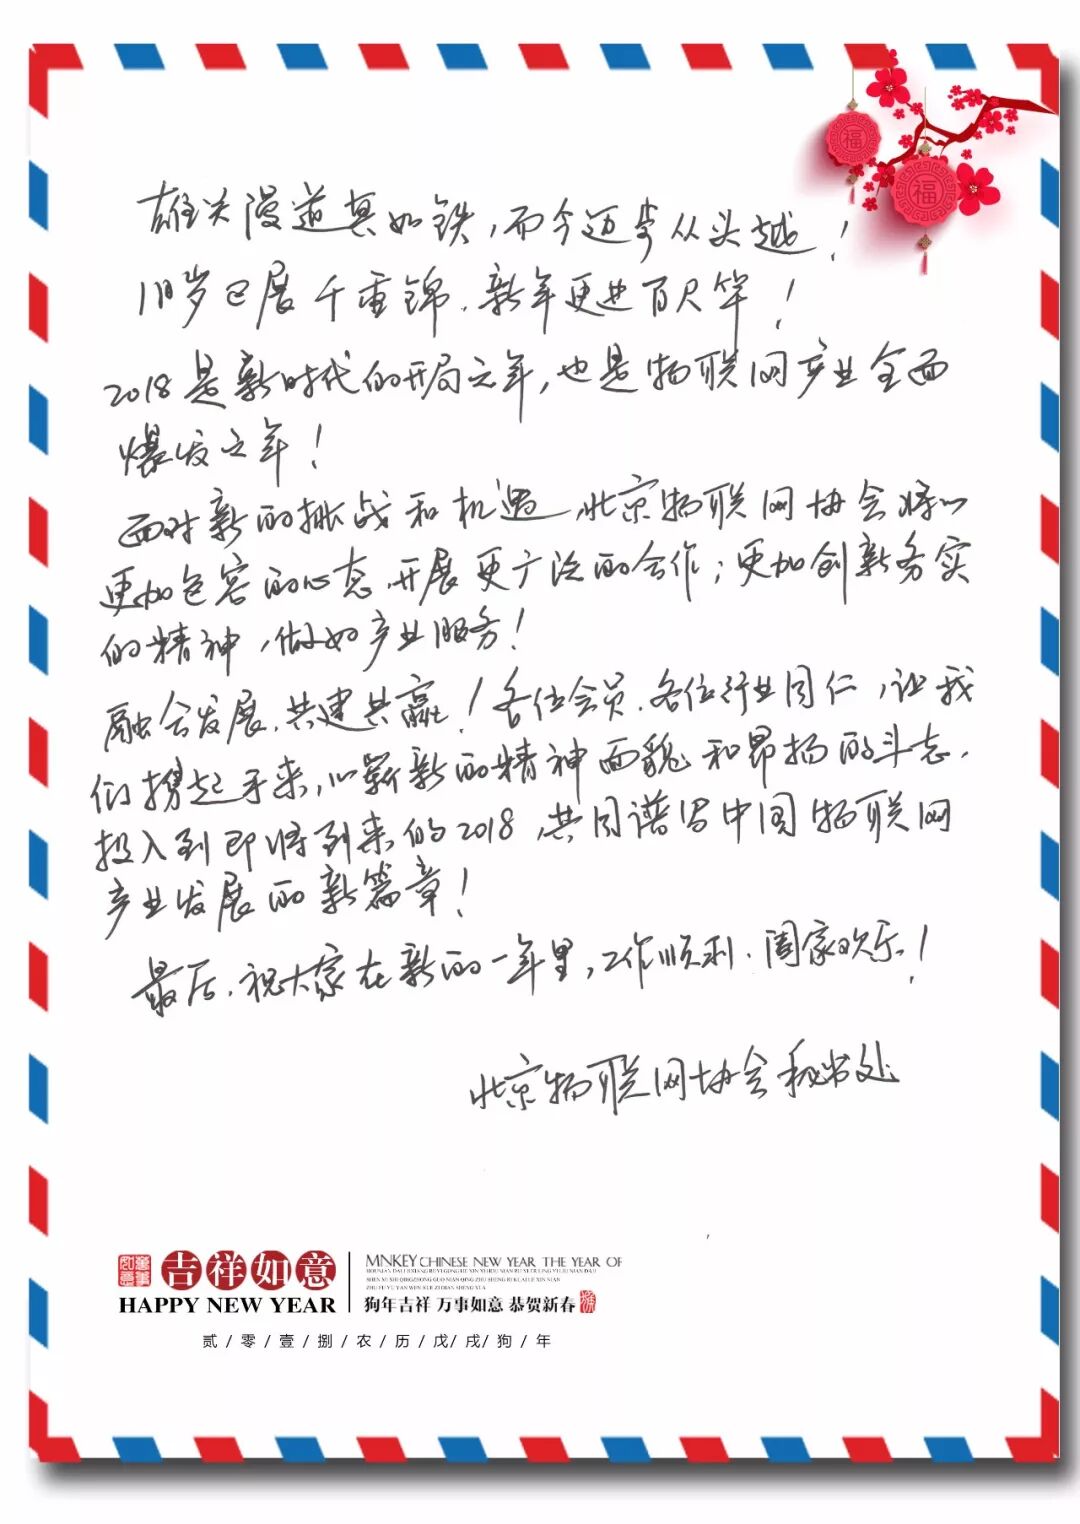 福
福
雄关漫道真如铁，而今迈步从头越！
旧岁已展千重锦，新年更进百尺竿！
2018是新时代的开局之年，也是物联网产业全面
爆发之年！
面对新的挑战和机遇，北京物联网协会将以
更加包容的心态，开展更广泛的合作；更加创新务实
的精神，做好产业服务！
融合发展，共建共赢！各位会员，各位行业同仁，让我
们携起手来，以崭新的精神面貌和昂扬的斗志，
投入到即将到来的2018，共同谱写中国物联网
产业发展的新篇章！
最后，祝大家在新的一年里，工作顺利，阖家欢乐！
北京物联网协会秘书处
吉祥如意
HAPPY NEW YEAR
MNKEY CHINESE NEW YEAR THE YEAR OF
狗年吉祥 万事如意 恭贺新春
贰/零/壹/捌/农/历/戊/戌/狗/年